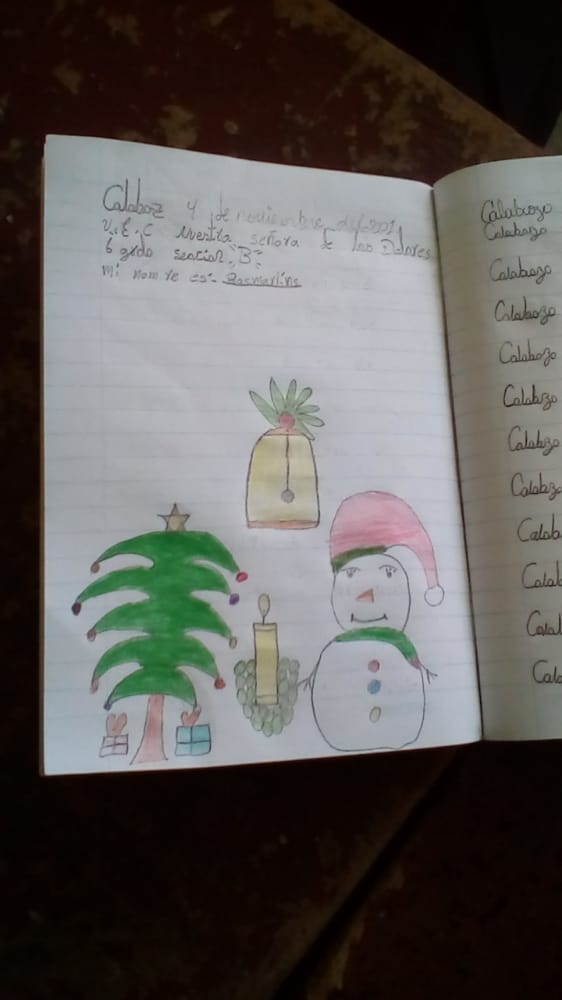 Calaboz 4 de noviembre del 201
U.E.C Nuestra señora de los Dolores
6 grdo seccion "B"
mi nomre es:-
Calabozo
Calabozo
Calabozo
Calabozo
Calabozo
Calabzo
Calabzo
Calabzo
Calab
Calab
Calal
Cala